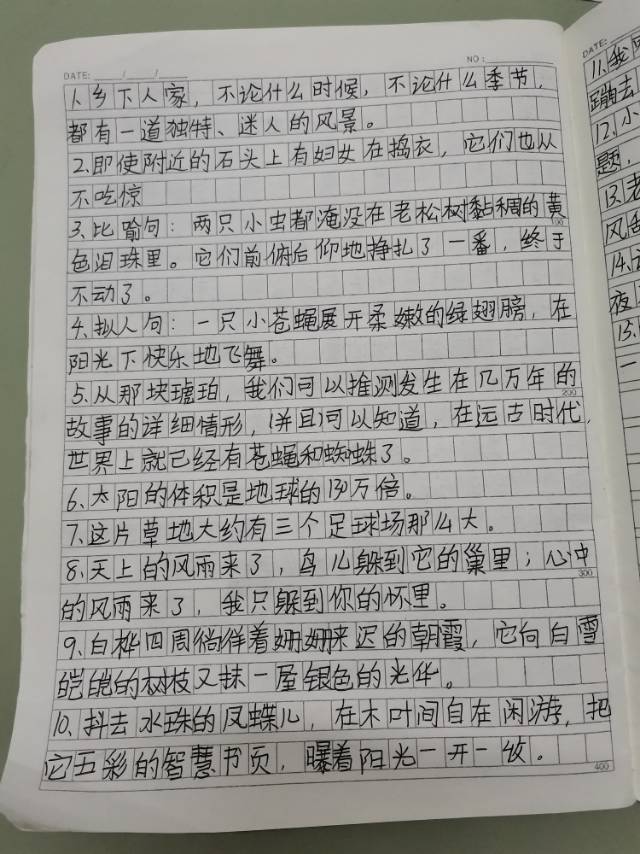 DATE: ___/___/___ NO:
1、乡下人家，不论什么时候，不论什么季节，
都有一道独特、迷人的风景。
2、即使附近的石头上有妇女在捣衣，它们也从
不吃惊
3、比喻句：两只小虫都淹没在老松树黏稠的黄
色泪珠里。它们前俯后仰地挣扎了一番，终于
不动了。
4、拟人句：一只小苍蝇展开柔嫩的绿翅膀，在
阳光下快乐地飞舞。
5、从那块琥珀，我们可以推测发生在几万年的
200
故事的详细情形，并且可以知道，在远古时代，
世界上就已经有苍蝇和蜘蛛了。
6、太阳的体积是地球的130万倍。
7、这片草地大约有三个足球场那么大。
8、天上的风雨来了，鸟儿躲到它的巢里；心中
300
的风雨来了，我只躲到你的怀里。
9、白桦四周徜徉着姗姗来迟的朝霞，它向白雪
皑皑的树枝又抹一层银色的光华。
10、抖去水珠的凤蝶儿，在木叶间自在闲游，把
它五彩的智慧书页，曝着阳光一开一收。
400
11、我
蹦去
12、小
题，
13、老
14、
夜
15、
一